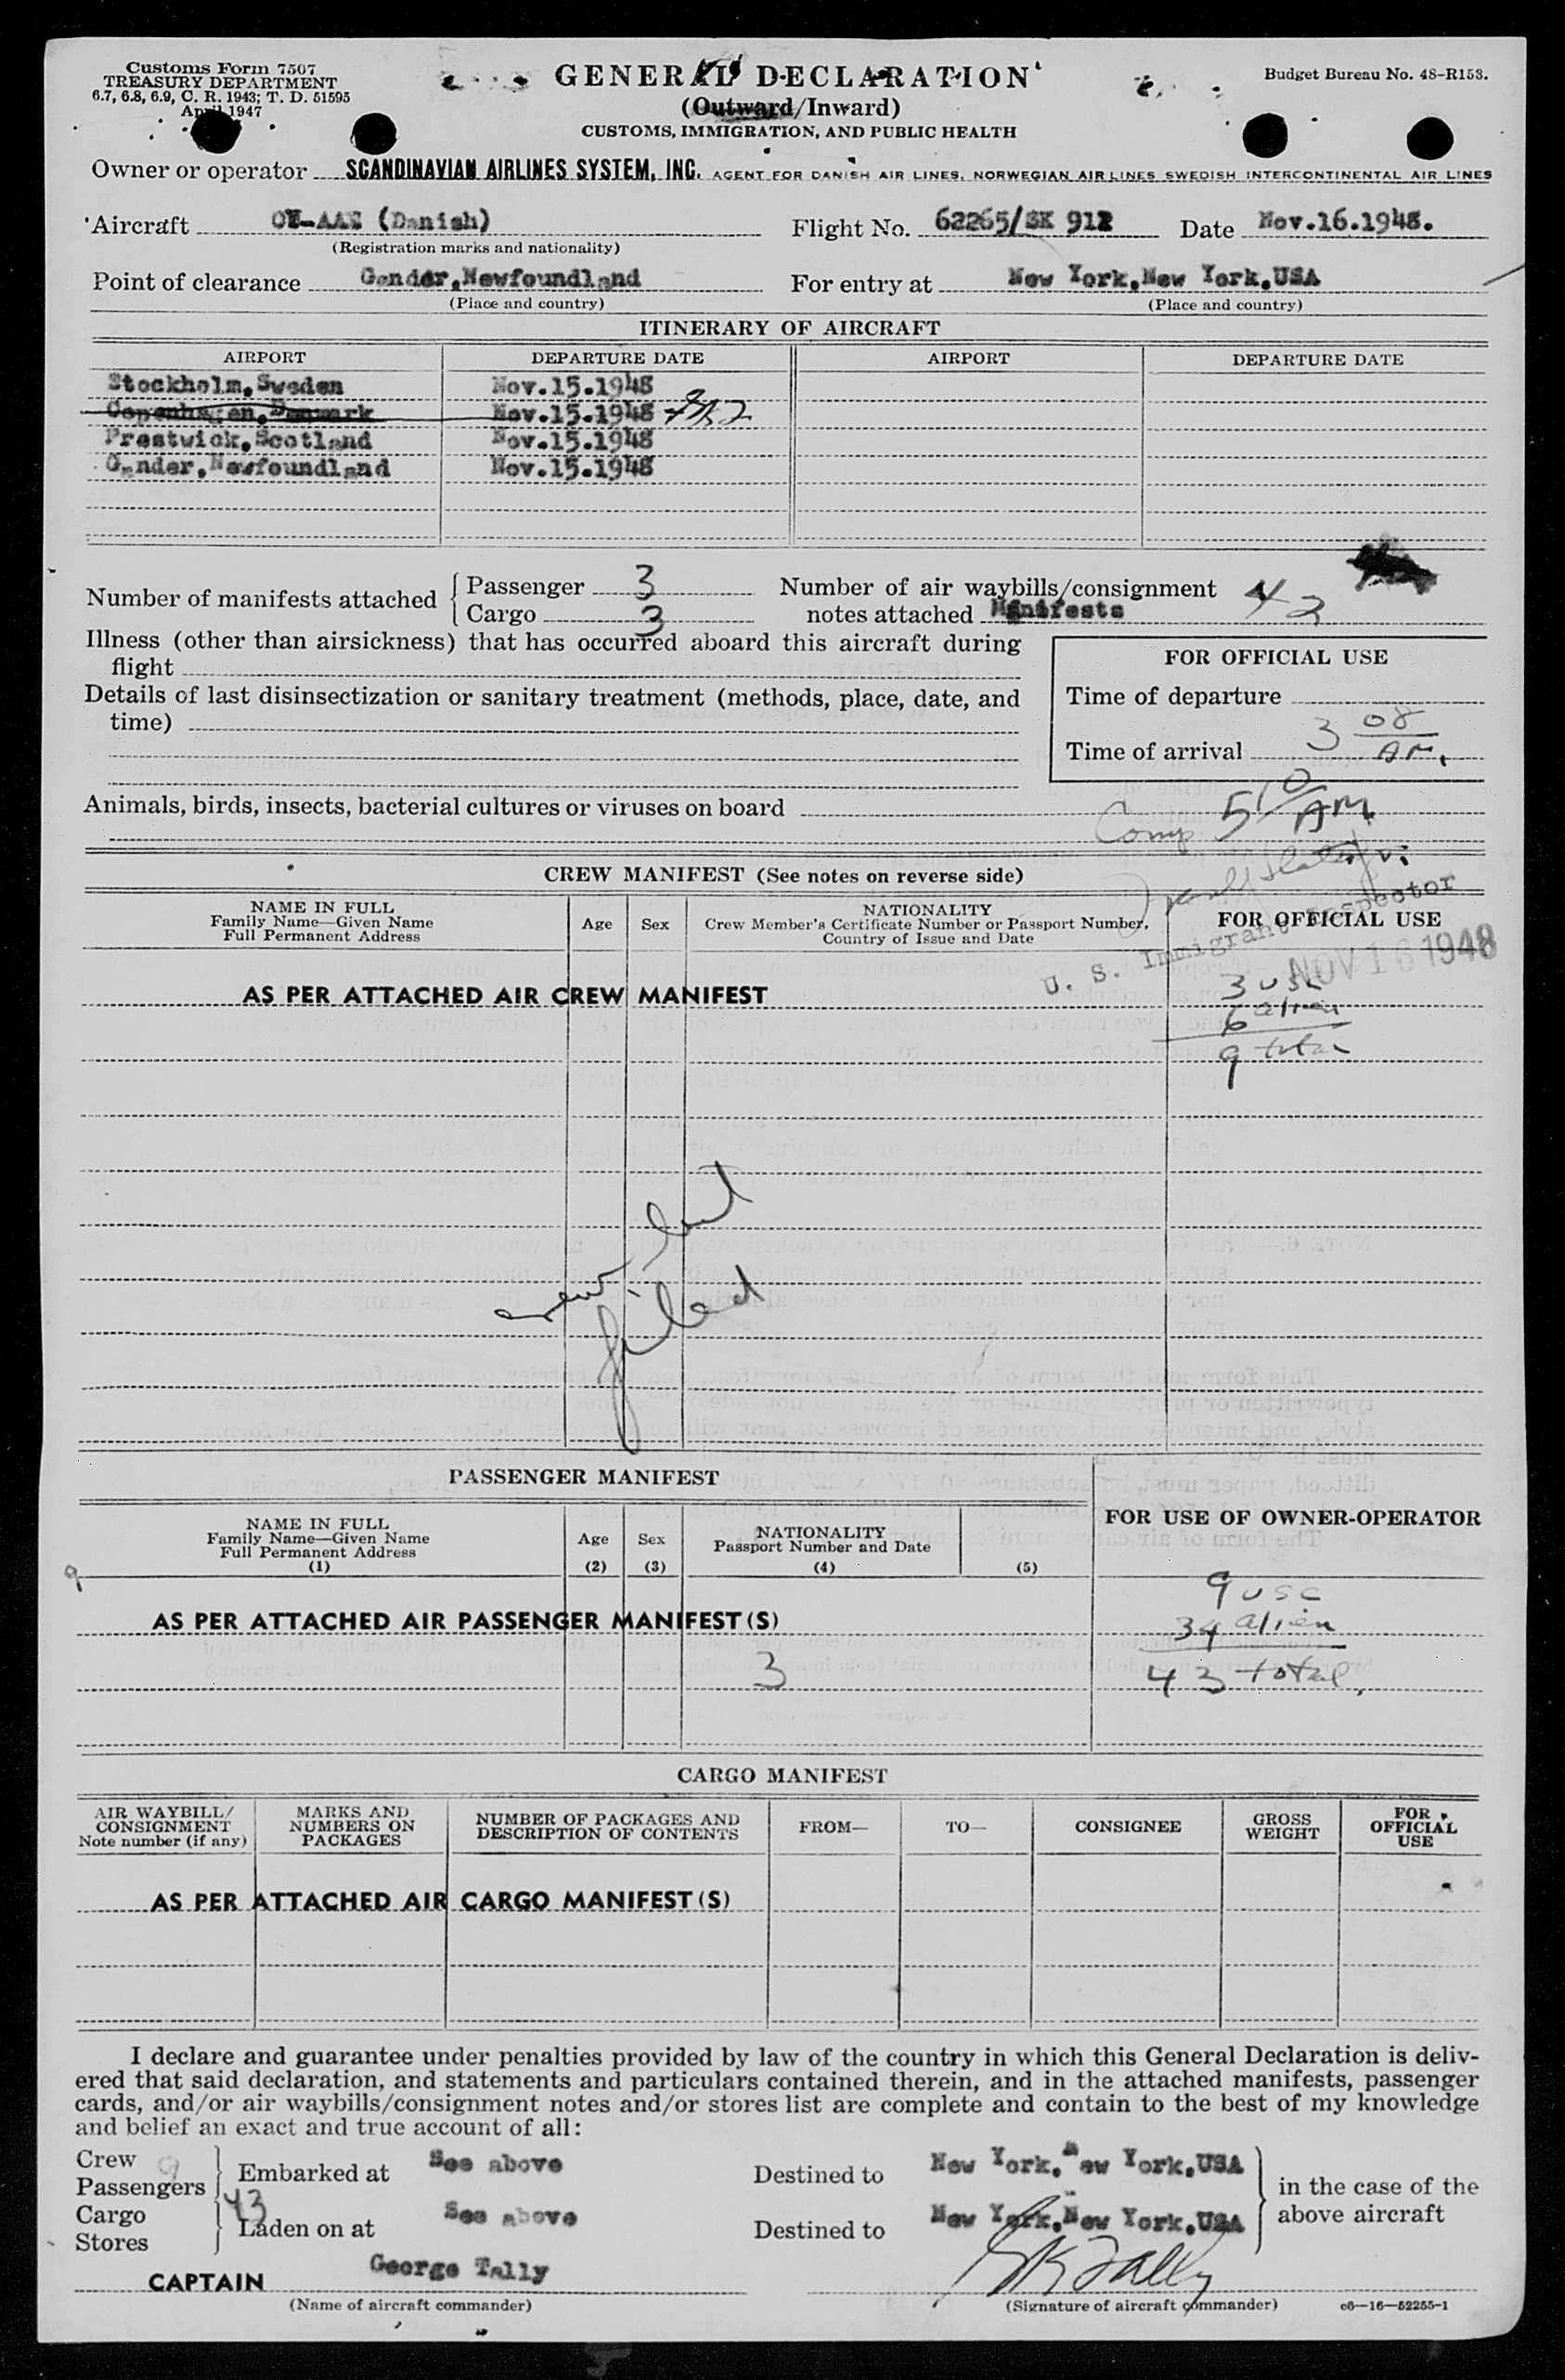 Customs Form 7507
TREASURY DEPARTMENT
6.7, 6.8, 6.9, C. R. 1943; T. D. 51595
April 1947
GENERAL DECLARATION
(Outward/Inward)
CUSTOMS, IMMIGRATION, AND PUBLIC HEALTH
Budget Bureau No. 48-R153.
Owner or operator SCANDINAVIAN AIRLINES SYSTEM, INC. AGENT FOR DANISH AIR LINES, NORWEGIAN AIR LINES SWEDISH INTERCONTINENTAL AIR LINES
Aircraft (Danish) Flight No. 62265/SK 912 Date Nov.16.1948.
(Registration marks and nationality)
Point of clearance Gander,Newfoundland For entry at New York,New York,USA
(Place and country) (Place and country)
ITINERARY OF AIRCRAFT
AIRPORT DEPARTURE DATE AIRPORT DEPARTURE DATE
Stockholm,Sweden Nov.15.1948
Copenhagen,Denmark Nov.15.1948
Prestwick,Scotland Nov.15.1948
Gander,Newfoundland Nov.15.1948
Number of manifests attached
Passenger 3
Cargo 3
Number of air waybills/consignment
notes attached Manifests 42
Illness (other than airsickness) that has occurred aboard this aircraft during
flight
Details of last disinsectization or sanitary treatment (methods, place, date, and
time)
FOR OFFICIAL USE
Time of departure
Time of arrival 3 08 AM.
Animals, birds, insects, bacterial cultures or viruses on board
Comp 5 10 AM
U. S. Immigrant Inspector
NOV 16 1948
CREW MANIFEST (See notes on reverse side)
NAME IN FULL
Family Name—Given Name
Full Permanent Address
Age
Sex
NATIONALITY
Crew Member's Certificate Number or Passport Number,
Country of Issue and Date
FOR OFFICIAL USE
AS PER ATTACHED AIR CREW MANIFEST
3 usc
6 alien
9 total
crew list
filed
PASSENGER MANIFEST
NAME IN FULL
Family Name—Given Name
Full Permanent Address
(1)
Age
(2)
Sex
(3)
NATIONALITY
Passport Number and Date
(4)
(5)
FOR USE OF OWNER-OPERATOR
9
AS PER ATTACHED AIR PASSENGER MANIFEST(S)
3
9 usc
34 alien
43 total,
CARGO MANIFEST
AIR WAYBILL/
CONSIGNMENT
Note number (if any)
MARKS AND
NUMBERS ON
PACKAGES
NUMBER OF PACKAGES AND
DESCRIPTION OF CONTENTS
FROM—
TO—
CONSIGNEE
GROSS
WEIGHT
FOR
OFFICIAL
USE
AS PER ATTACHED AIR CARGO MANIFEST(S)
I declare and guarantee under penalties provided by law of the country in which this General Declaration is deliv-
ered that said declaration, and statements and particulars contained therein, and in the attached manifests, passenger
cards, and/or air waybills/consignment notes and/or stores list are complete and contain to the best of my knowledge
and belief an exact and true account of all:
Crew 9
Passengers 43
Embarked at See above Destined to New York, New York,USA
Cargo
Stores
Laden on at See above Destined to New York,New York,USA
in the case of the
above aircraft
CAPTAIN George Tally
(Name of aircraft commander)
GK Tally
(Signature of aircraft commander)
c6—16—52255-1